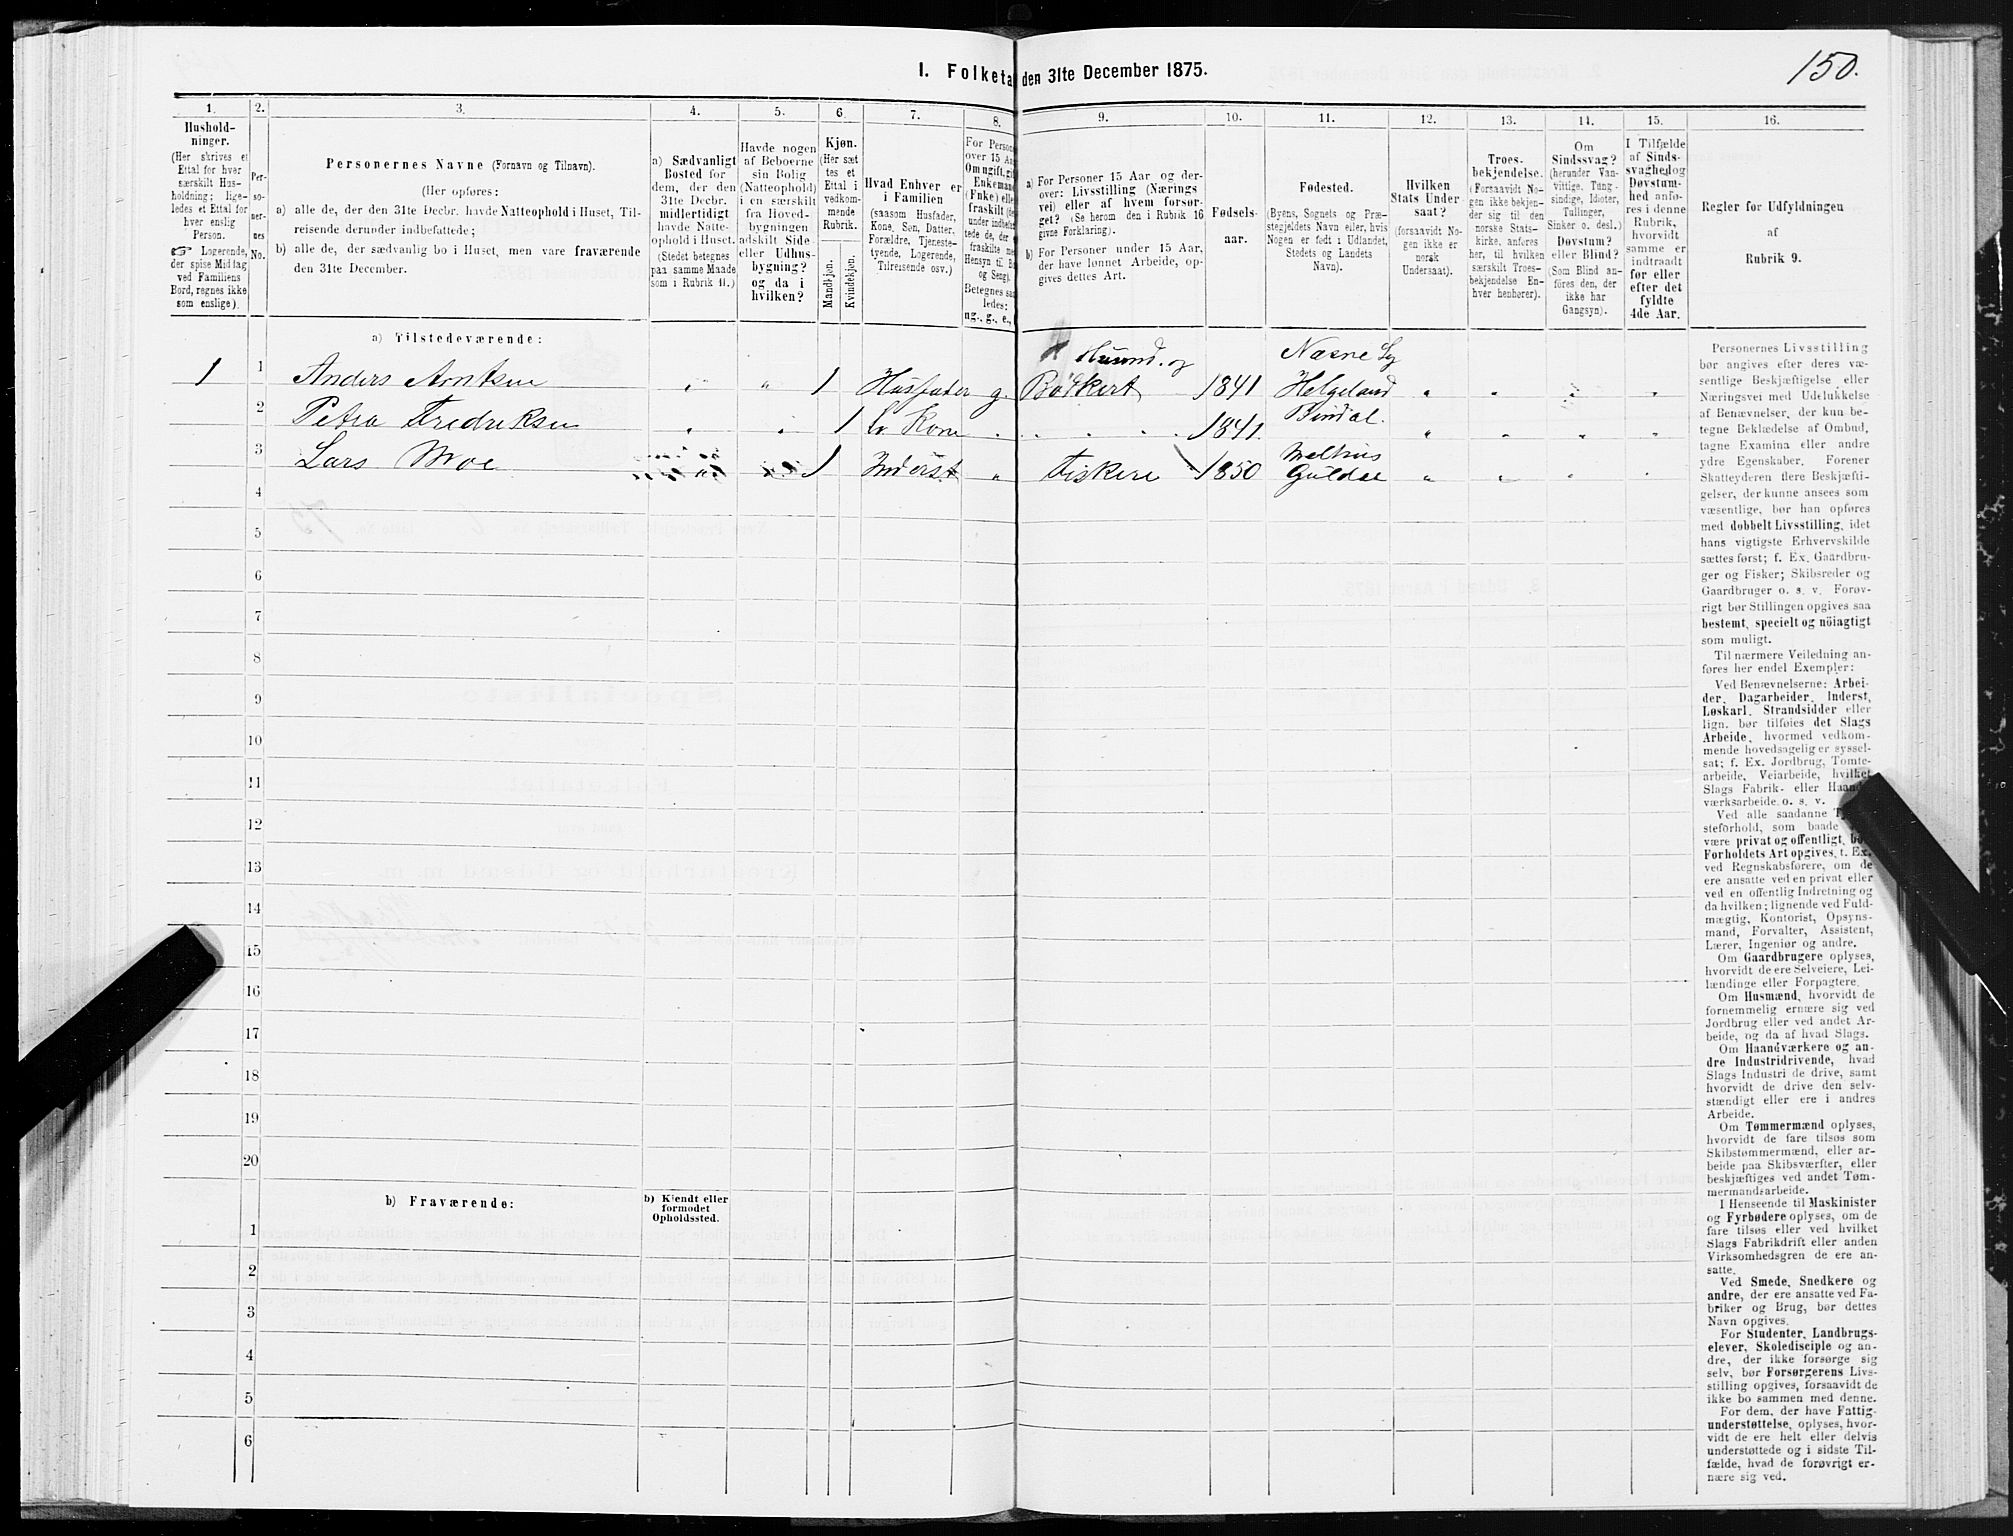 150.
I. Folketa den 31te December 1875.
1. 2. 3. 4. 5. 6. 7. 8. 9. 10. 11. 12. 13. 14. 15. 16.
Hushold-
ninger.
(Her skrives et
Ettal for hver
særskilt Hus-
holdning; lige-
ledes et Ettal for
hver enslig
Person.
☞ Logerende,
der spise Middag
ved Familiens
Bord, regnes ikke
som enslige).
Per-
so-
ner-
nes
No.
Personernes Navne (Fornavn og Tilnavn).
(Her opføres:
a) alle de, der den 31te Decbr. havde Natteophold i Huset, Til-
reisende derunder indbefattede;
b) alle de, der sædvanlig bo i Huset, men vare fraværende
den 31te December.
a) Sædvanligt
Bosted for
dem, der den
31te Decbr.
midlertidigt
havde Natte-
ophold i Huset.
(Stedet betegnes
paa samme Maade
som i Rubrik 11.)
Havde nogen
af Beboerne
sin Bolig
(Natteophold)
i en særskilt
fra Hoved-
bygningen
adskilt Side-
eller Udhus-
bygning?
og da i
hvilken?
Kjøn.
(Her sæt
tes et
Ettal i
vedkom-
mende
Rubrik.
Mandkjøn.
Kvindekjøn.
Hvad Enhver er
i Familien
(saasom Husfader,
Kone, Søn, Datter,
Forældre, Tjeneste-
tyende, Logerende,
Tilreisende osv.)
For Person
over 15 Aa
Om ugift, gif
Enkemand
(Enke) elle
fraskilt (de
under indbefat
tede de, der
fraskilte me
Hensyn til B
og Seng).
Betegnes saa
ledes:
ug., g., e.,
a) For Personer 15 Aar og der-
over: Livsstilling (Nærings
vei) eller af hvem forsør-
get? (Se herom den i Rubrik 16
givne Forklaring).
b) For Personer under 15 Aar,
der have lønnet Arbeide, op-
gives dettes Art.
Fødsels-
aar.
Fødested.
(Byens, Sognets og Præ-
stegjeldets Navn eller, hvis
Nogen er født i Udlandet,
Stedets og Landets
Navn).
Hvilken
Stats Under-
saat?
(forsaavidt No-
gen ikke er
norsk
Undersaat).
Troes-
bekjendelse.
(Forsaavidt No-
gen ikke bekjen-
der sig til den
norske Stats-
kirke, anføres
her, til hvilken
særskilt Troes-
bekjendelse En-
hver henhører).
Om
Sindssvag?
(herunder Van-
vittige, Tung-
sindige, Idioter,
Tullinger,
Sinker o. desl.)
Døvstum?
eller Blind?
(Som Blind an-
føres den, der
ikke har
Gangsyn).
I Tilfælde
af Sinds-
svaghed og
Døvstum-
hed anfø-
res i denne
Rubrik,
hvorvidt
samme er
indtraadt
før eller
efter det
fyldte
4de Aar.
Regler for Udfyldningen
af
Rubrik 9.
a) Tilstedeværende:
1 1 Anders Arntsen " " 1 Husfader g. Husmd. og Bødkert 1841 Næsne Sg Helgeland " " " "
2 Petra Fredriksen " " 1 hs Kone 1841. Bindal. " " " "
3 Lars Moe 1 Inderst " Fiskere 1850 Melhus Guldal " " " "
4
5
6
7
8
9
10
11
12
13
14
15
16
17
18
19
20
b) Fraværende:
b) Kjendt eller
formodet
Opholdssted.
1
2
3
4
5
6
Personernes Livsstilling
bør angives efter deres væ-
sentlige Beskjæftigelse eller
Næringsvei med Udelukkelse
af Benævnelser, der kun be-
tegne Beklædelse af Ombud,
tagne Examina eller andre
ydre Egenskaber. Forener
Skatteyderen flere Beskjæfti-
gelser, der kunne ansees som
væsentlige, bør han opføres
med dobbelt Livsstilling, idet
hans vigtigste Erhvervskilde
sættes først; f. Ex. Gaardbru-
ger og Fisker; Skibsreder og
Gaardbruger o. s. v. Forøv-
rigt bør Stillingen opgives saa
bestemt, specielt og nöiagtigt
som muligt.
Til nærmere Veiledning an-
føres her endel Exempler:
Ved Benævnelserne: Arbei-
der, Dagarbeider, Inderst,
Løskarl, Strandsidder eller
lign. bør tilføies det Slags
Arbeide, hvormed vedkom-
mende hovedsagelig er syssel-
sat; f. Ex. Jordbrug, Tomte-
arbeide, Veiarbeide, hvilket
Slags Fabrik- eller Haand-
værksarbeide o. s. v.
Ved alle saadanne Tje-
steforhold, som baade
være privat og offentligt, bør
Forholdets Art opgives, t. Ex.
ved Regnskabsførere, om de
ere ansatte ved en privat eller
ved en offentlig Indretning og
da hvilken; lignende ved Fuld-
mægtig, Kontorist, Opsyns-
mand, Forvalter, Assistent,
Lærer, Ingeniør og andre.
Om Gaardbrugere oplyses,
hvorvidt de ere Selveiere, Lei-
lændinge eller Forpagtere.
Om Husmænd, hvorvidt de
fornemmelig ernære sig ved
Jordbrug eller ved andet Ar-
beide, og da af hvad Slags.
Om Haandværkere og an-
dre Industridrivende, hvad
Slags Industri de drive, samt
hvorvidt de drive den selv-
stændigt eller ere i andres
Arbeide.
Om Tømmermænd oplyses,
hvorvidt de fare tilsøs som
Skibstømmermænd, eller ar-
beide paa Skibsværfter, eller
beskjæftiges ved andet Tøm-
mermandsarbeide.
I Henseende til Maskinister
og Fyrbødere oplyses, om de
fare tilsøs eller ved hvilket
Slags Fabrikdrift eller anden
Virksomhedsgren de ere an-
satte.
Ved Smede, Snedkere og
andre, der ere ansatte ved Fa-
briker og Brug, bør dettes
Navn opgives.
For Studenter, Landbrugs-
elever, Skoledisciple og an-
dre, der ikke forsørge sig
selv, bør Forsørgerens Livs-
stilling opgives, forsaavidt de
ikke bo sammen med denne.
For dem, der have Fattig-
understøttelse, oplyses, hvor-
vidt de ere helt eller delvis
understøttede og i sidste Til-
fælde, hvad de forøvrigt er-
nære sig ved.